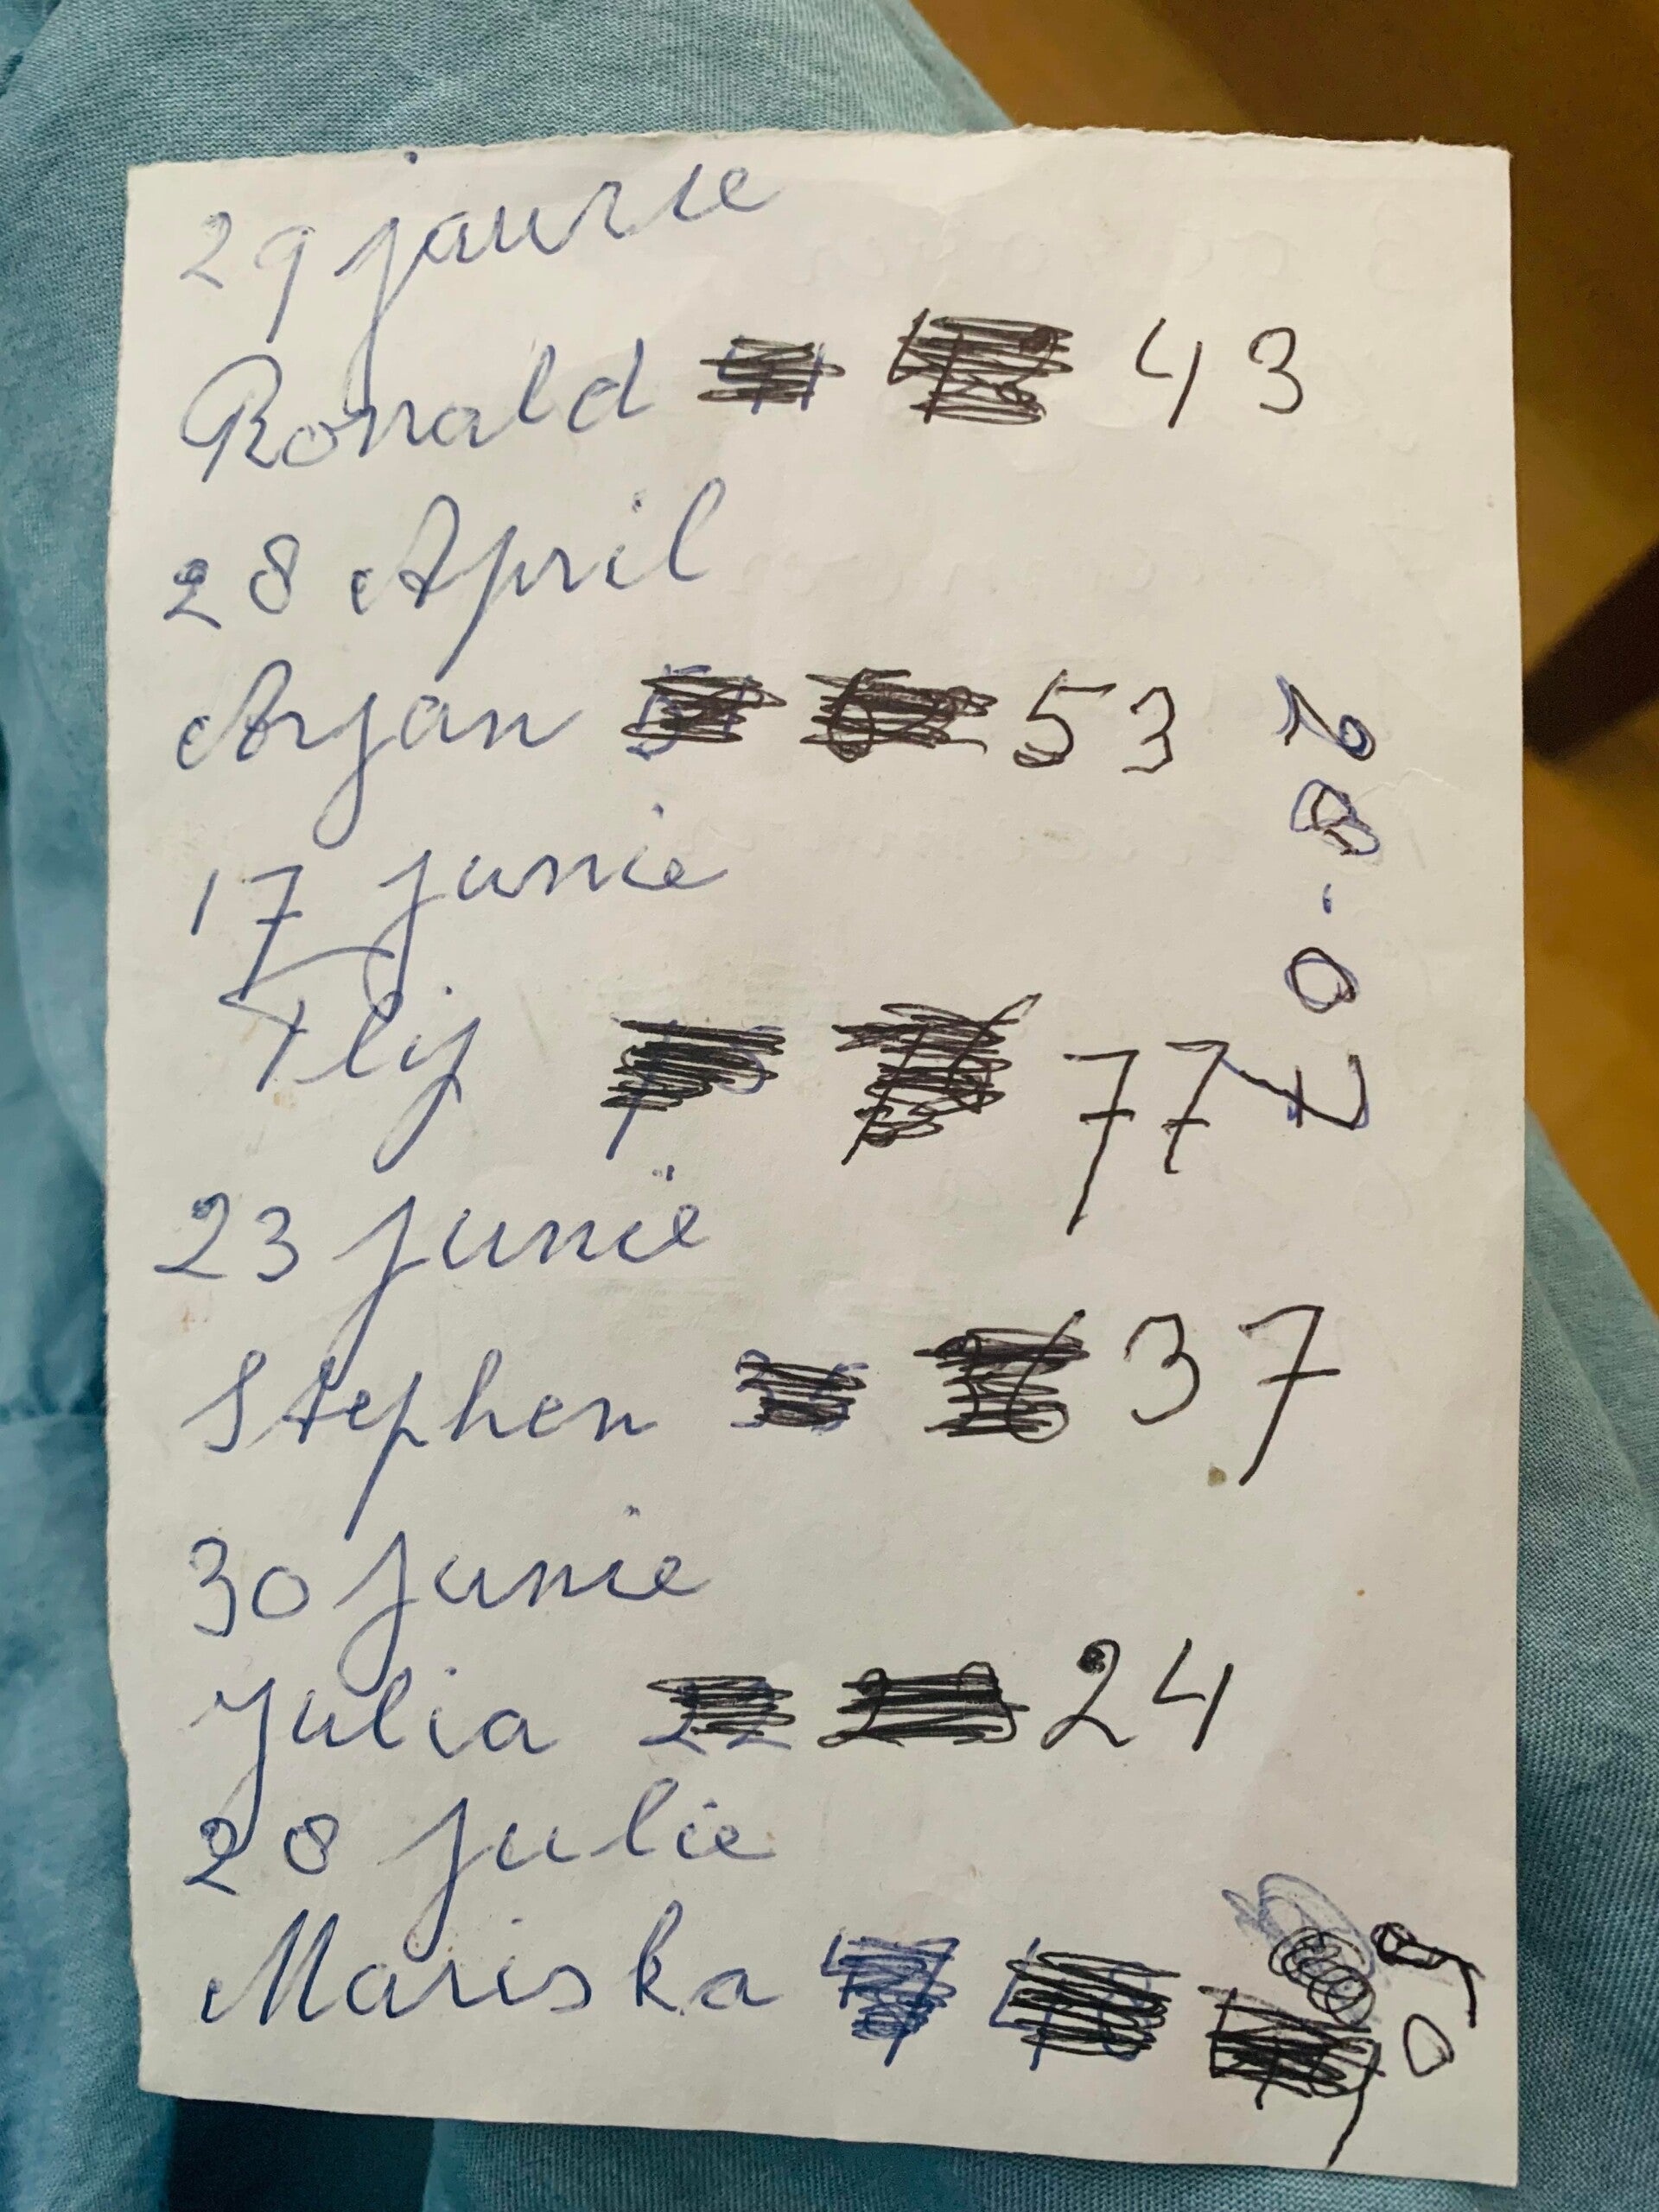 29 jaurie
Ronald 43
28 April
Arjan 53
17 junie
Flij 77
23 junie
Stephen 37
30 junie
Julia 24
28 julie
Mariska